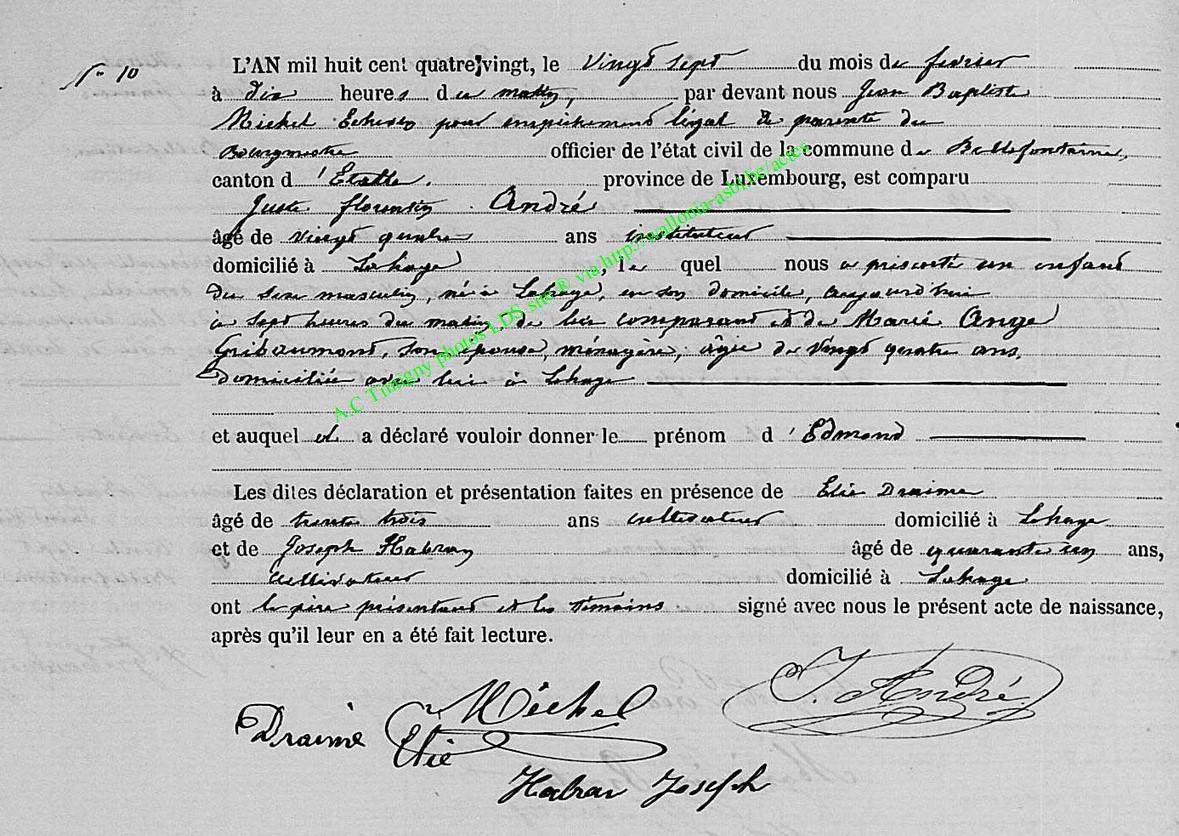 N° 10
L'AN mil huit cent quatre-vingt, le vingt sept du mois de février
à dix heures du matin, par devant nous Jean Baptiste
Michel Echevin pour empêchement légal de parenté du
Bourgmestre officier de l'état civil de la commune de Bellefontaine,
canton d'Etalle. province de Luxembourg, est comparu
Juste Florentin André
âgé de vingt quatre ans instituteur
domicilié à Lahage, lequel nous a présenté un enfant
du sexe masculin, né à Lahage, en son domicile, aujourd'hui
à sept heures du matin, de lui comparant et de Marie Ange
Gribaumont, son épouse, ménagère, âgée de vingt quatre ans,
domiciliée avec lui à Lahage
et auquel il a déclaré vouloir donner le prénom d'Edmond
Les dites déclaration et présentation faites en présence de Elie Draime
âgé de trente trois ans cultivateur domicilié à Lahage
et de Joseph Habran âgé de quarante un ans,
cultivateur domicilié à Lahage
ont le père présentant et les témoins signé avec nous le présent acte de naissance,
après qu'il leur en a été fait lecture.
Michel J. André
Draime Elie
Habran Joseph
A.C Tintigny photos LDS site® via http://walloniarasbl.be/actes